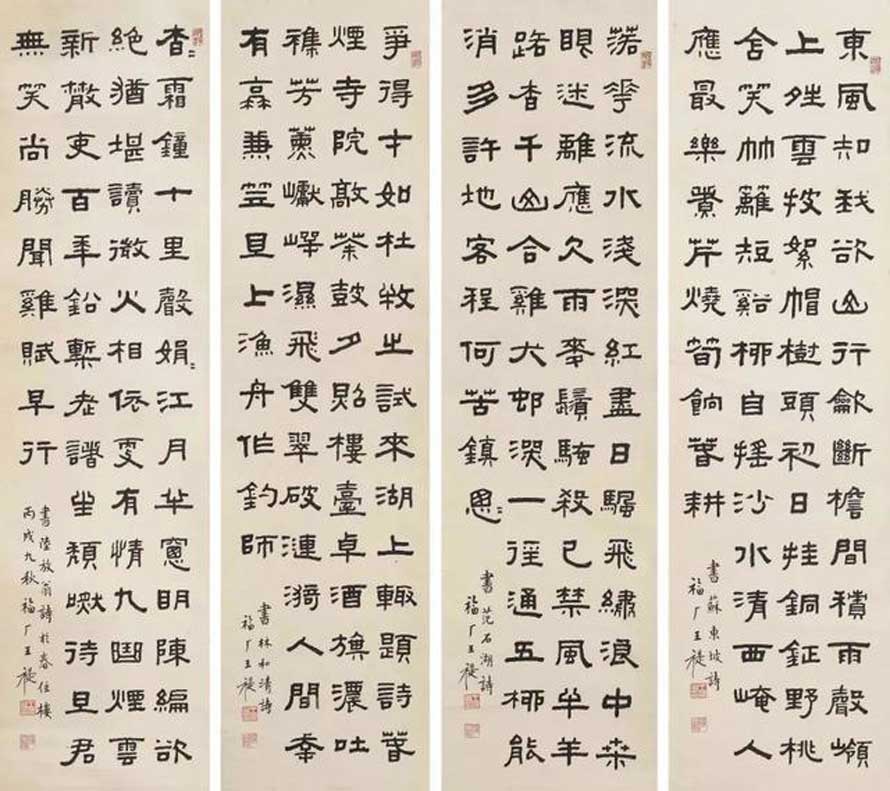 東風知我欲山行龡斷檐間積雨聲嶺
上夝雲披絮帽樹頭初日挂銅鉦野桃
含笑竹籬短谿柳自搖沙水清西崦人
應最樂煮芹燒筍餉萅耕
書蘇東坡詩
福厂王禔
落華流水淺深紅盡日颿飛繡浪中桑
眼迷離應欠雨麥鬚騷殺已禁風牛羊
路杳千山合雞犬邨深一徑通五柳能
消多許地客程何苦鎮悤〻
書范石湖詩
福厂王禔
爭得才如杜牧之試來湖上輒題詩萅
煙寺院敲茶鼓夕照樓臺卓酒旗濃吐
襍芳薰巘崿濕飛雙翠破漣漪人間幸
有蓑兼笠且上漁舟作釣師
書林和靖詩
福厂王禔
杳〻霜鐘十里聲娟〻江月半窗明陳編欲
絕猶堪讀微火相依更有情九幽煙雲
新散吏百年鉛槧老諸坐頹待旦君
無笑尚勝聞雞賦早行
書陸放翁詩於春住樓
丙戌九秋福厂王禔